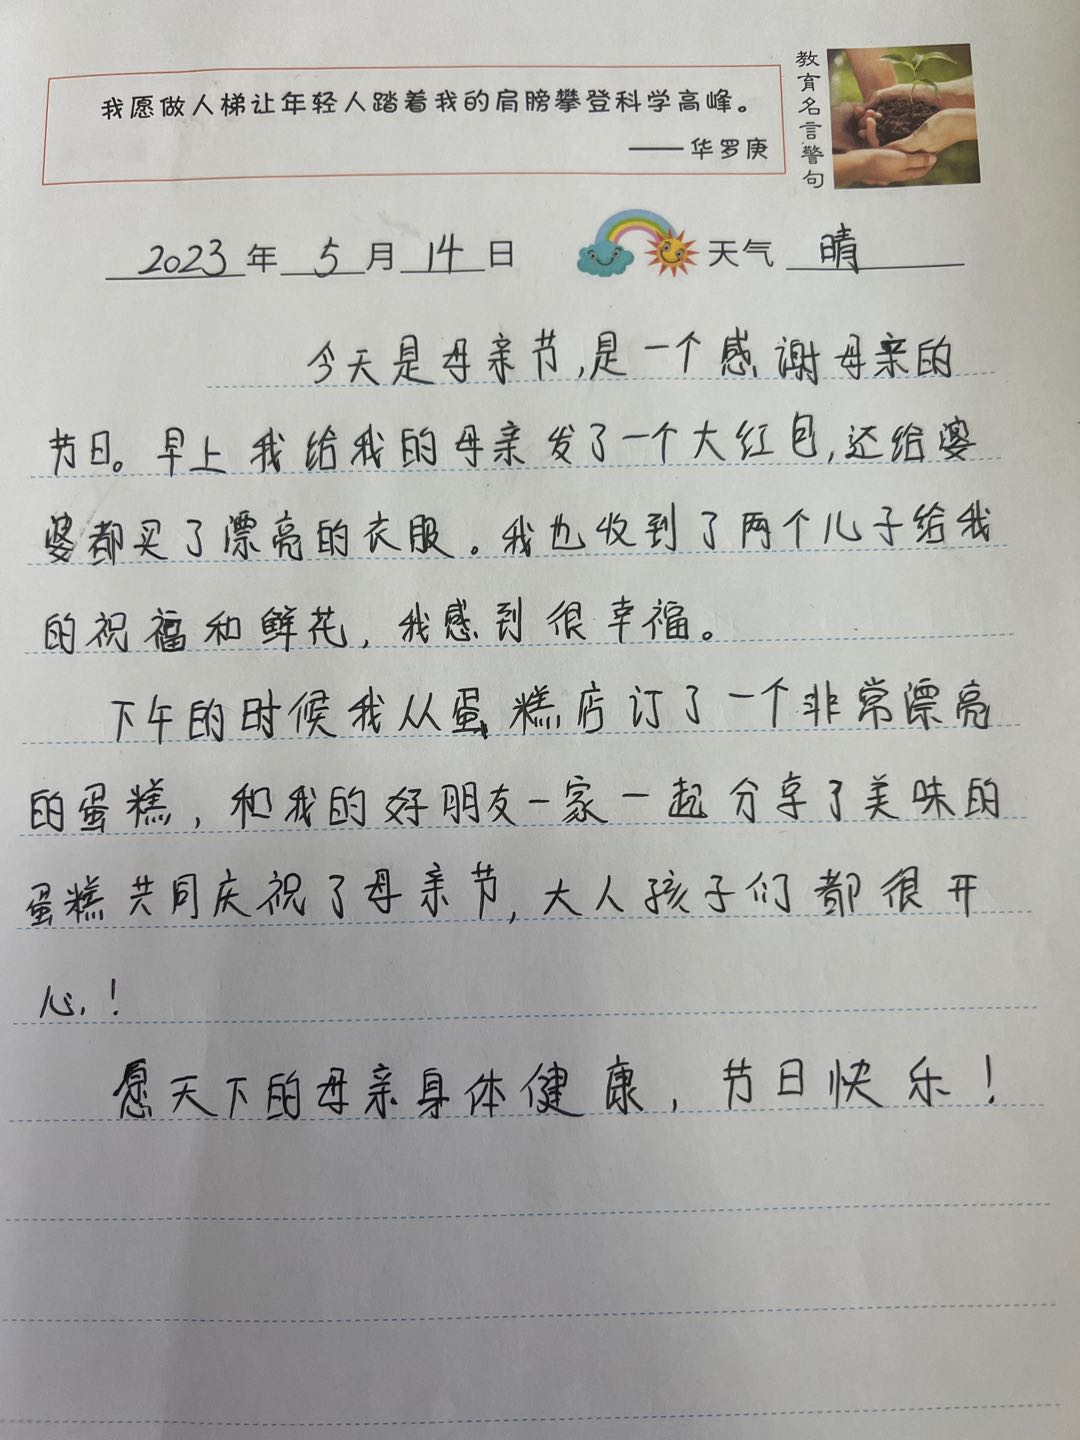 我愿做人梯让年轻人踏着我的肩膀攀登科学高峰。
——华罗庚
教育名言警句
2023年5月14日 天气 晴
今天是母亲节,是一个感谢母亲的
节日。早上我给我的母亲发了一个大红包,还给婆
婆都买了漂亮的衣服。我也收到了两个儿子给我
的祝福和鲜花,我感到很幸福。
下午的时候我从蛋糕店订了一个非常漂亮
的蛋糕,和我的好朋友一家一起分享了美味的
蛋糕共同庆祝了母亲节,大人孩子们都很开
心!
愿天下的母亲身体健康,节日快乐!